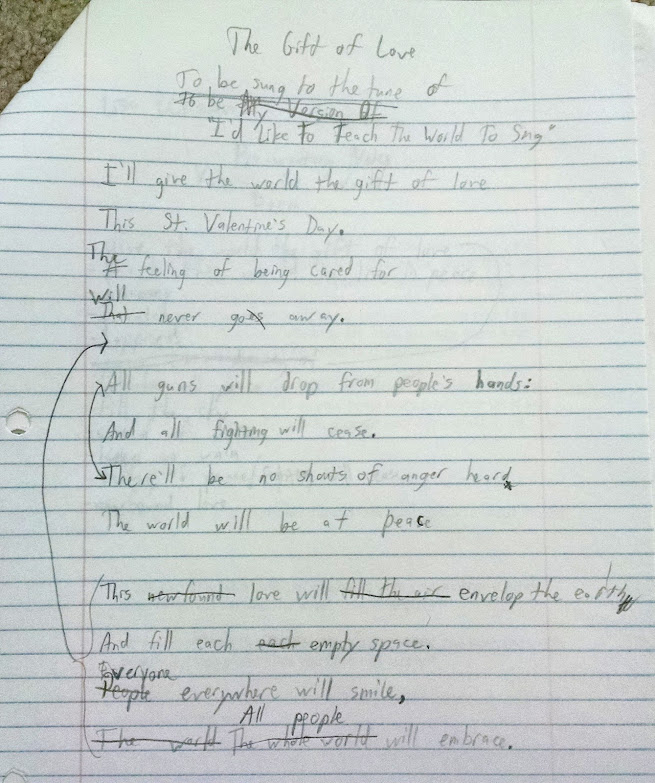 The Gift of Love
To be sung to the tune of
To be My Version Of
"I'd Like To Teach The World To Sing"
I'll give the world the gift of love
This St. Valentine's Day.
The
A feeling of being cared for
Will
That never goes away.
All guns will drop from people's hands:
And all fighting will cease.
There'll be no shouts of anger heard
The world will be at peace
This newfound love will fill the air envelop the earth
And fill each each empty space.
Everyone
People everywhere will smile,
All people
The world The whole world will embrace.